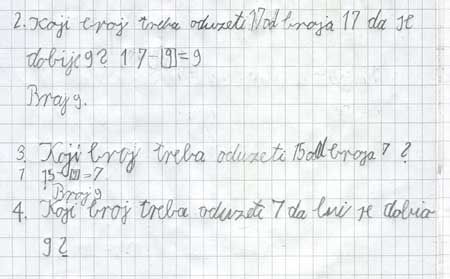 2. Koji broj treba oduzeti 17 od broja 17 da se
dobije 9? 17-9=9
Broj 9.
3. Koji broj treba oduzeti 15 od broja 7?
15- =7
Broj 9
4. Koji broj treba oduzeti 7 da bi se dobio
9?